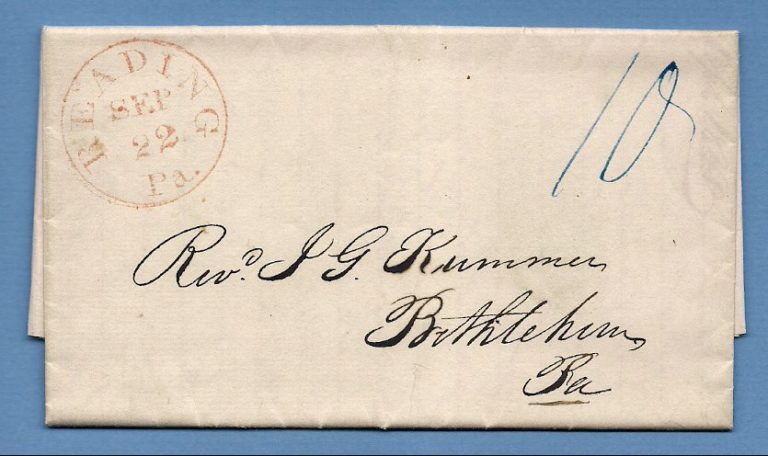 READING
SEP
22
Pa.
10
Revd. J G. Kummer
Bethlehem
Pa